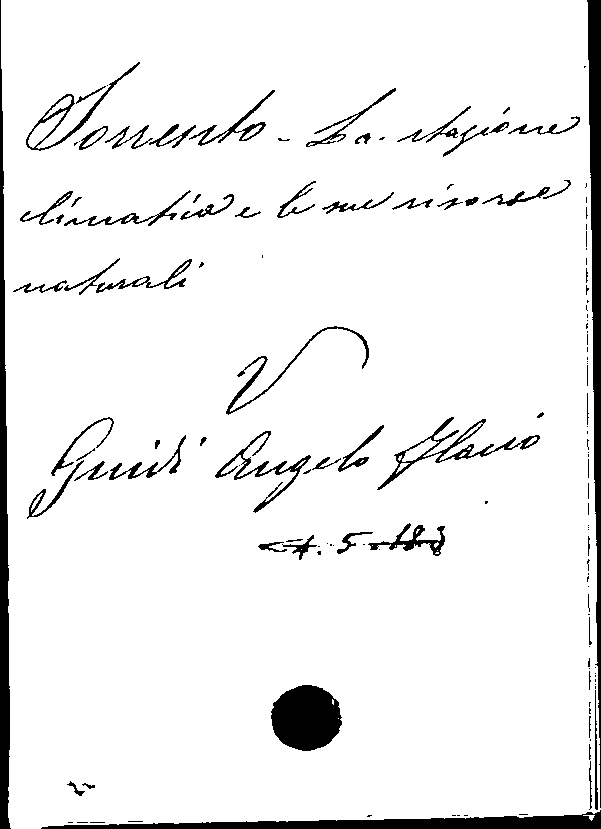 Sorrento - La stagione
climatica e le sue risorse
naturali
V
Guidi Angelo Flavio
A. 5.183